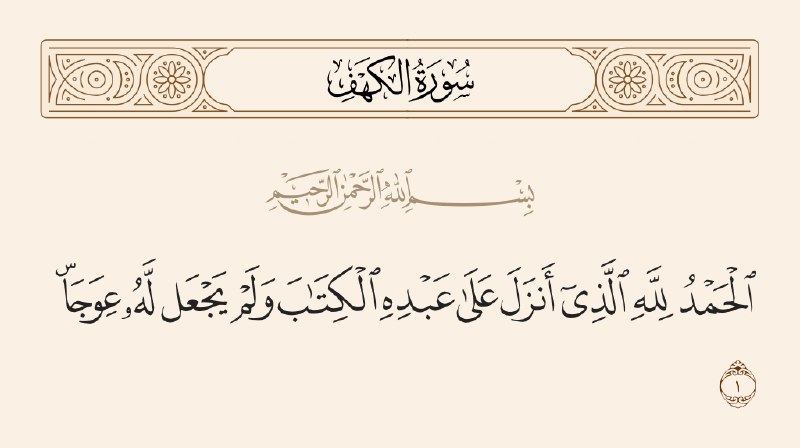 سُورَةُ الكَهۡفِ
بِسۡمِ ٱللَّهِ ٱلرَّحۡمَٰنِ ٱلرَّحِيمِ
ٱلۡحَمۡدُ لِلَّهِ ٱلَّذِيٓ أَنزَلَ عَلَىٰ عَبۡدِهِ ٱلۡكِتَٰبَ وَلَمۡ يَجۡعَل لَّهُۥ عِوَجَاۜ
١